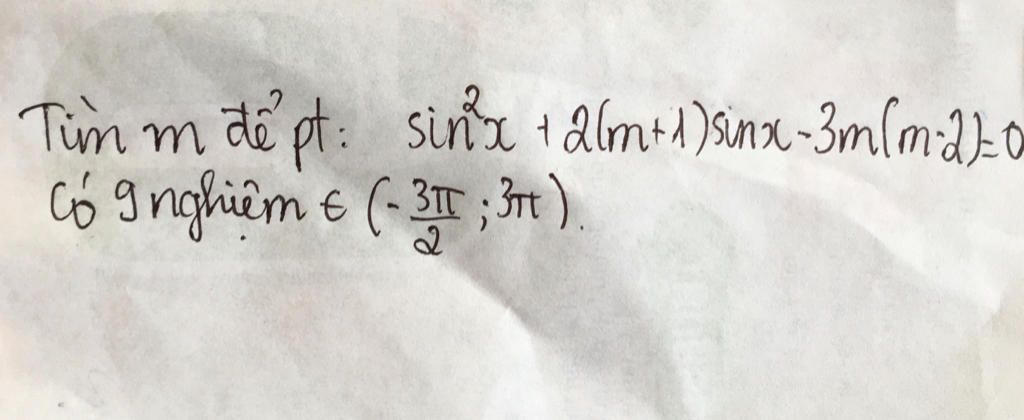 Tìm m để pt: sin²x + 2(m+1)sinx - 3m(m-2)=0
có 9 nghiệm ∈ (-3π/2; 3π).